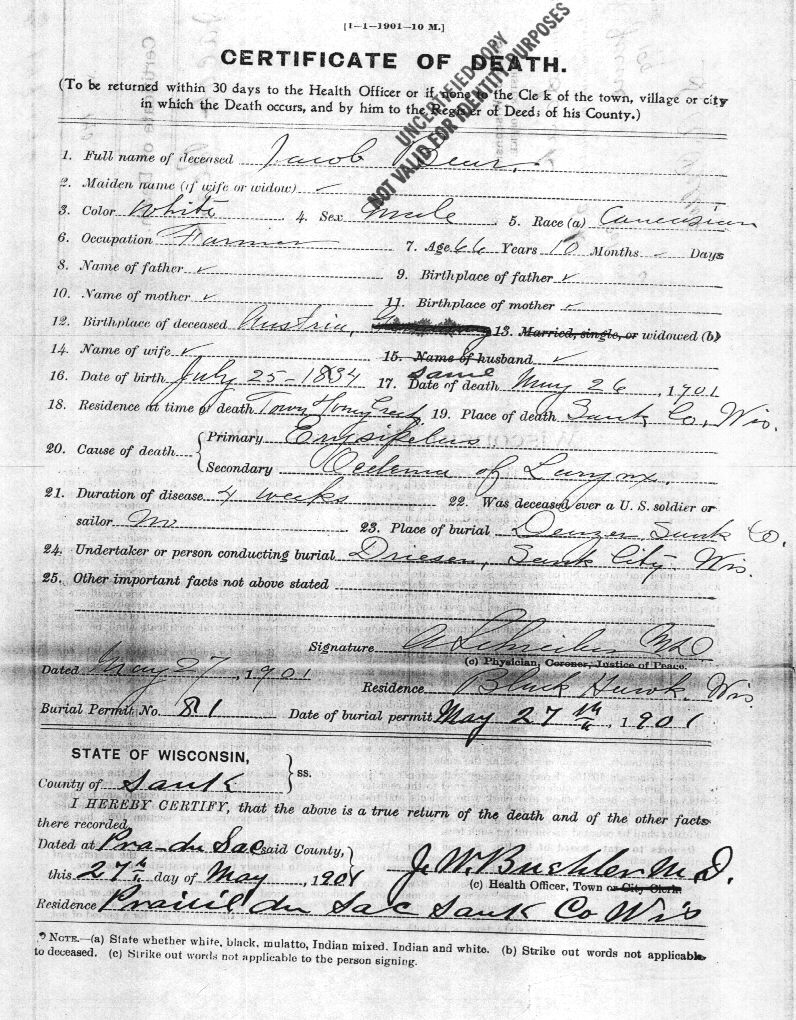 [1-1-1901-10 M.]
CERTIFICATE OF DEATH.
UNCERTIFIED COPY
NOT VALID FOR IDENTITY PURPOSES
(To be returned within 30 days to the Health Officer or if none to the Cle k of the town, village or city
in which the Death occurs, and by him to the Register of Deeds of his County.)
1. Full name of deceased Jacob Bear.
2. Maiden name (if wife or widow) ✓
3. Color White 4. Sex Male 5. Race (a) Caucasian
6. Occupation Farmer 7. Age 66 Years 10 Months - Days
8. Name of father ✓ 9. Birthplace of father ✓
10. Name of mother ✓ 11. Birthplace of mother ✓
12. Birthplace of deceased Austria, 13. Married, single, or widowed (b)
14. Name of wife ✓ 15. Name of husband ✓
16. Date of birth July 25-1834 17. Date of death May 26, 1901
18. Residence at time of death Town Honey Creek 19. Place of death Sauk Co, Wis.
20. Cause of death Primary Erysipelas
Secondary Oedema of Larynx.
21. Duration of disease 4 weeks 22. Was deceased ever a U. S. soldier or
sailor No 23. Place of burial Denzer Sauk Co.
24. Undertaker or person conducting burial Driesen, Sauk City Wis.
25. Other important facts not above stated
Signature A Schreiber MD
(c) Physician, Coroner, Justice of Peace.
Dated May 27, 1901
Residence Black Hawk, Wis.
Burial Permit No. 81 Date of burial permit May 27th, 1901
STATE OF WISCONSIN,
County of Sauk ss.
I HEREBY CERTIFY, that the above is a true return of the death and of the other facts
there recorded
Dated at Pra-du Sac said County,
this 27th day of May, 1901 J. W. Buehler M. D.
(c) Health Officer, Town or City Clerk
Residence Prairie du Sac Sauk Co Wis
NOTE.—(a) State whether white, black, mulatto, Indian mixed, Indian and white. (b) Strike out words not applicable
to deceased. (c) Strike out words not applicable to the person signing.